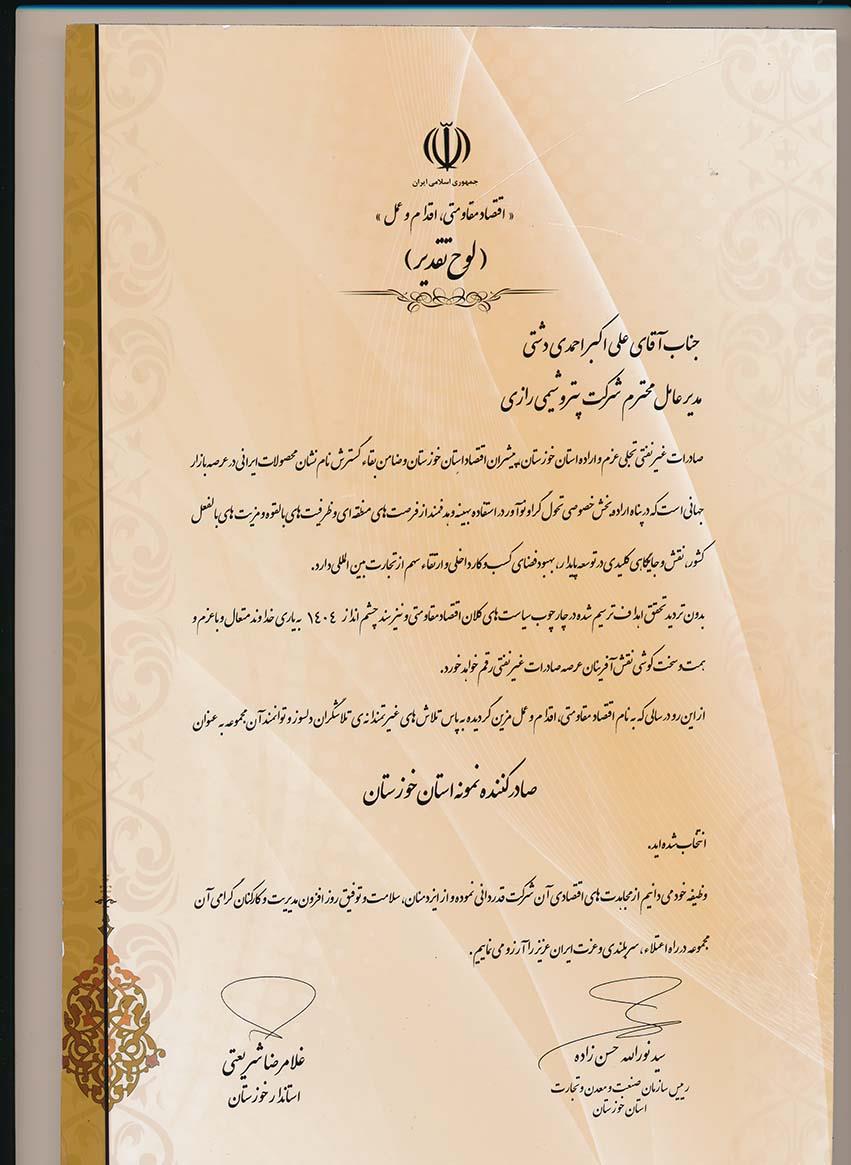 جمهوری اسلامی ایران
« اقتصاد مقاومتی، اقدام و عمل »
( لوح تقدیر )
جناب آقای علی اکبر احمدی دشتی
مدیر عامل محترم شرکت پتروشیمی رازی
صادرات غیر نفتی تجلی عزم و اراده استان خوزستان، پیشران اقتصاد استان خوزستان و ضامن بقاء گسترش نام نشان محصولات ایرانی در عرصه بازار
جهانی است که در پناه اراده بخش خصوصی تحول گرا و نوآور در استفاده بهینه و هدفمند از فرصت های منطقه ای و ظرفیت های بالقوه و مزیت های بالفعل
کشور، نقش و جایگاهی کلیدی در توسعه پایدار، بهبود فضای کسب و کار داخلی و ارتقاء سهم از تجارت بین المللی دارد.
بدون تردید تحقق اهداف ترسیم شده در چارچوب سیاست های کلان اقتصاد مقاومتی و نیز سند چشم انداز ۱۴۰۴ به یاری خداوند متعال و با عزم و
همت و سخت کوشی نقش آفرینان عرصه صادرات غیر نفتی رقم خواهد خورد.
از این رو در سالی که به نام اقتصاد مقاومتی، اقدام و عمل مزین گردیده به پاس تلاش های غیرتمندانه ی تلاشگران دلسوز و توانمند آن مجموعه به عنوان
صادر کننده نمونه استان خوزستان
انتخاب شده اید.
وظیفه خود می دانیم از مجاهدت های اقتصادی آن شرکت قدردانی نموده و از ایزد منان، سلامت و توفیق روز افزون مدیریت و کارکنان گرامی آن
مجموعه در راه اعتلاء، سربلندی و عزت ایران عزیز را آرزو می نماییم.
سید نورالله حسن زاده
رییس سازمان صنعت و معدن و تجارت
استان خوزستان
غلامرضا شریعتی
استاندار خوزستان